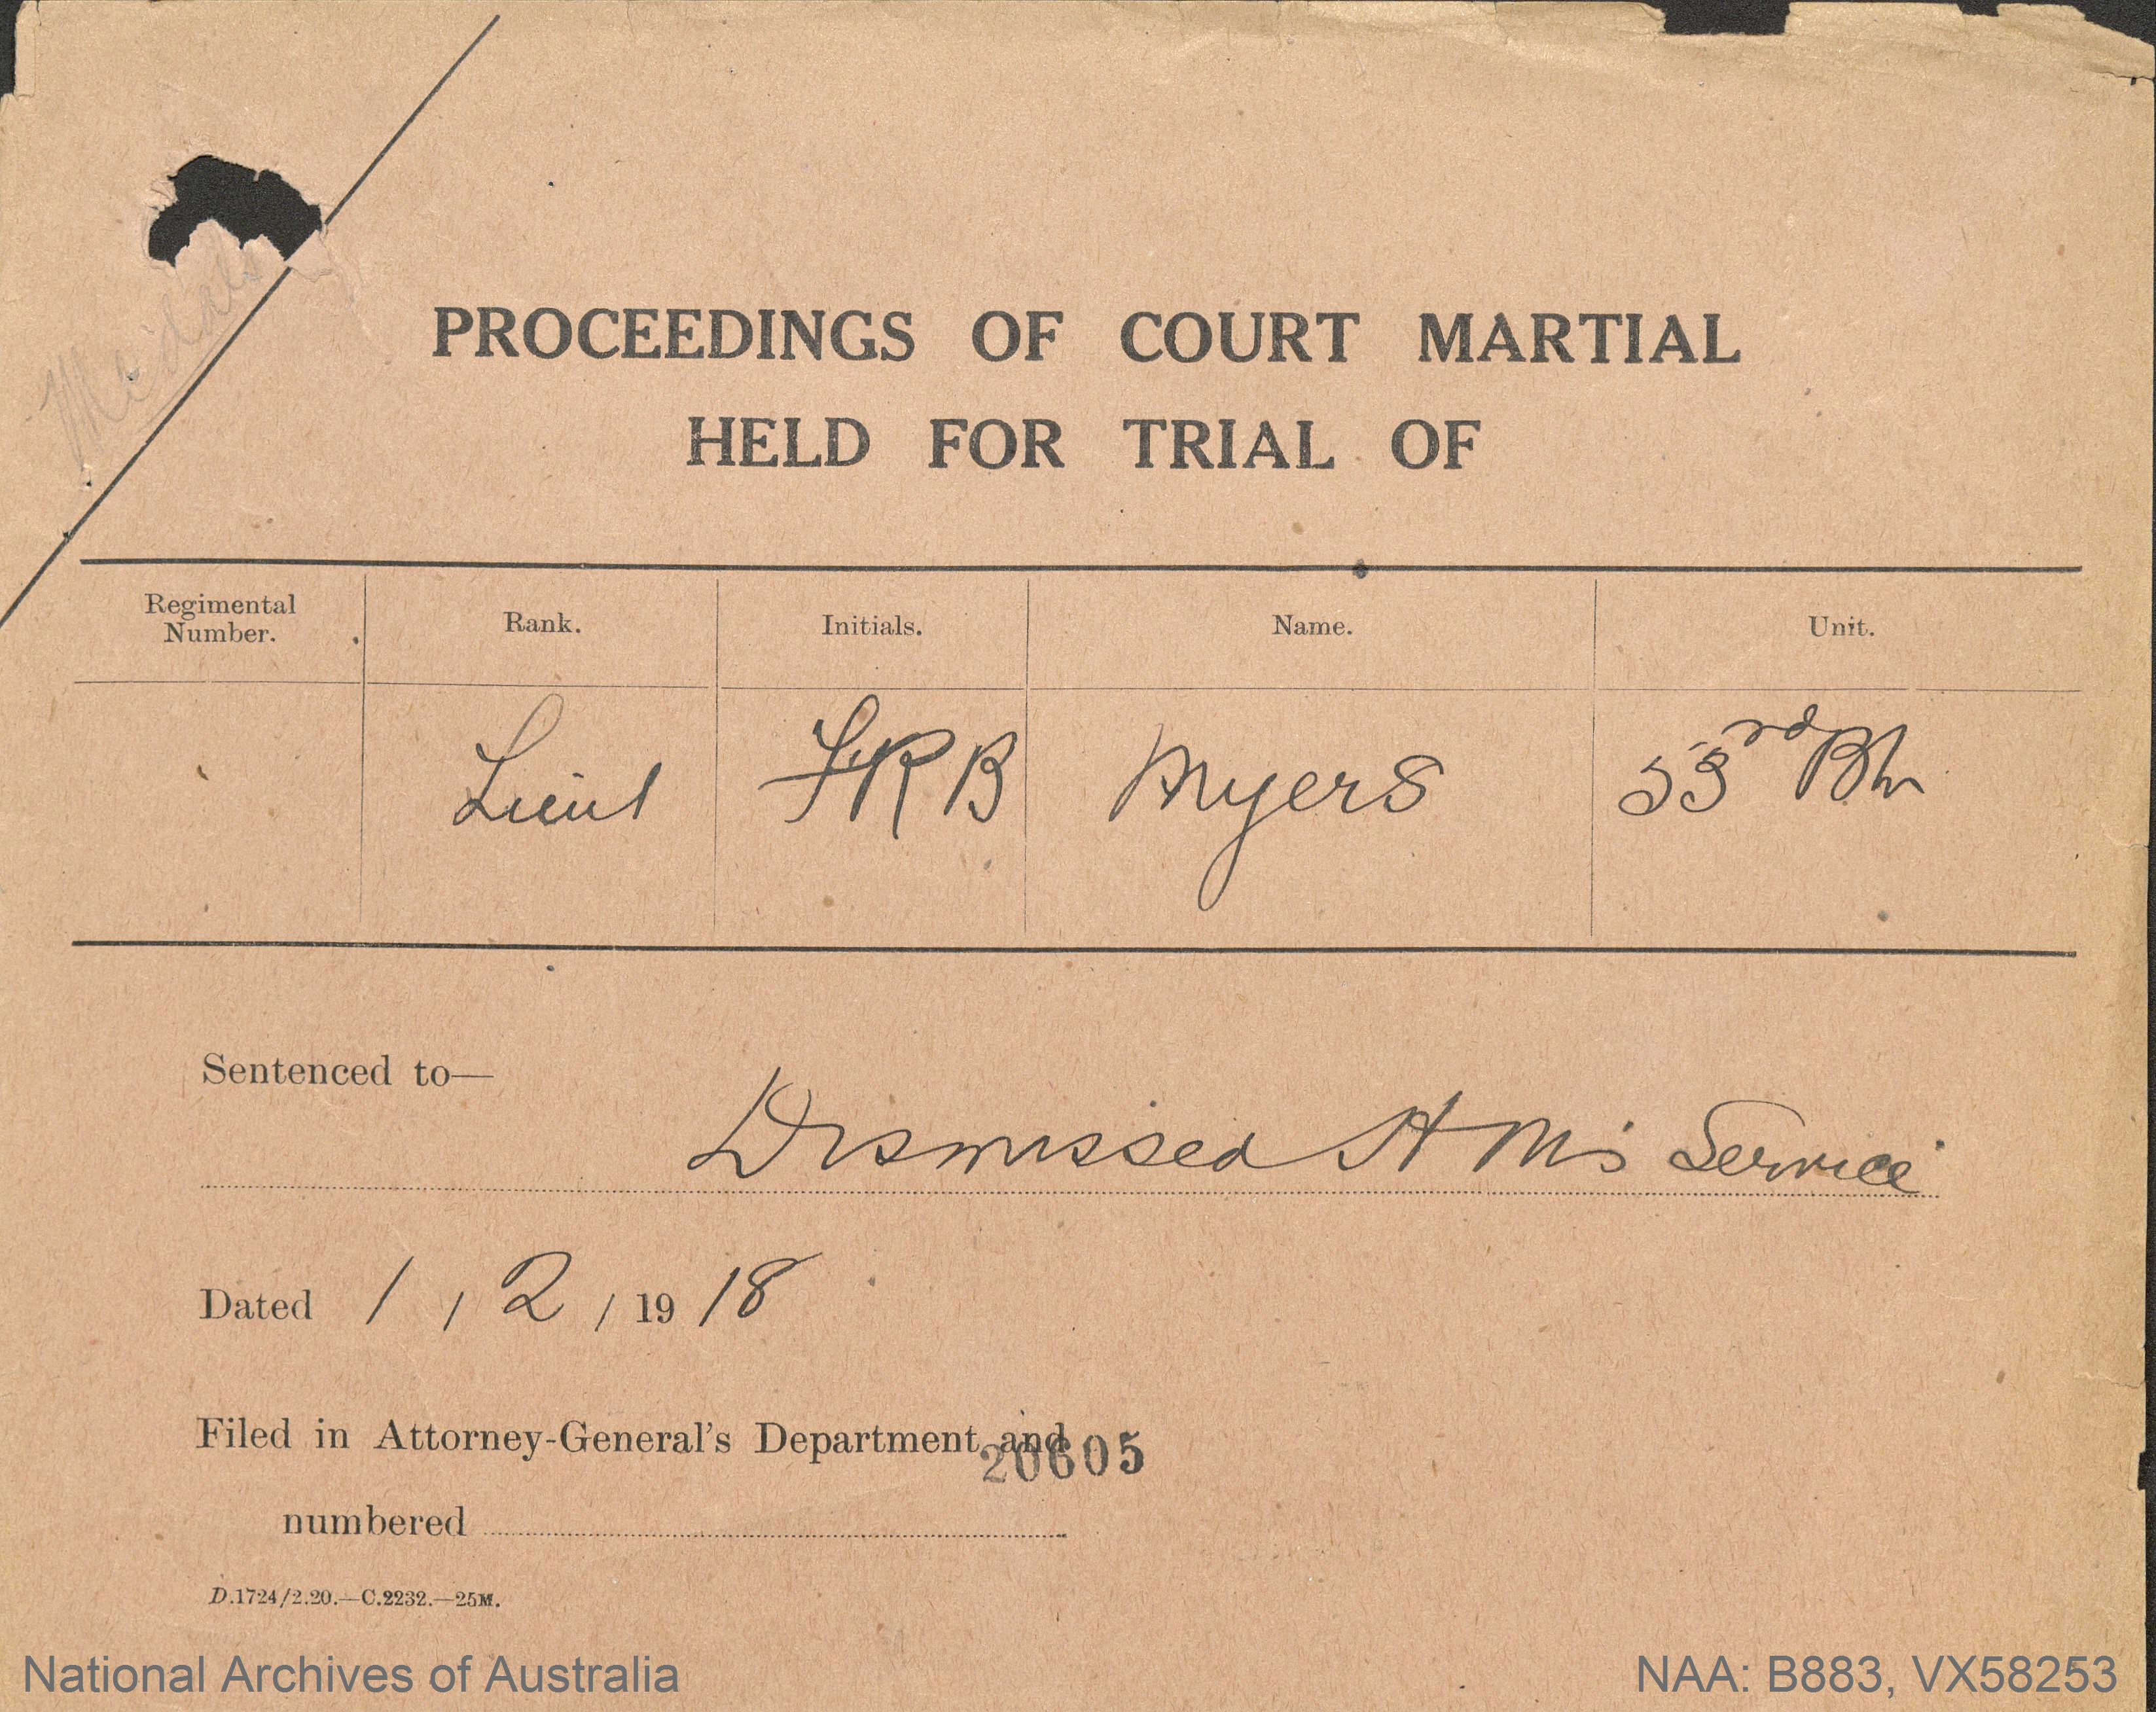 Medals
PROCEEDINGS OF COURT MARTIAL
HELD FOR TRIAL OF
Regimental
Number.
Rank.
Initials.
Name.
Unit.
Lieut
FRB
Myers
53rd Bn
Sentenced to—
Dismissed H M's Service
Dated 1 / 2 / 19 18
Filed in Attorney-General's Department and
20605
numbered
D.1724/2.20.—C.2232.—25M.
National Archives of Australia
NAA: B883, VX58253